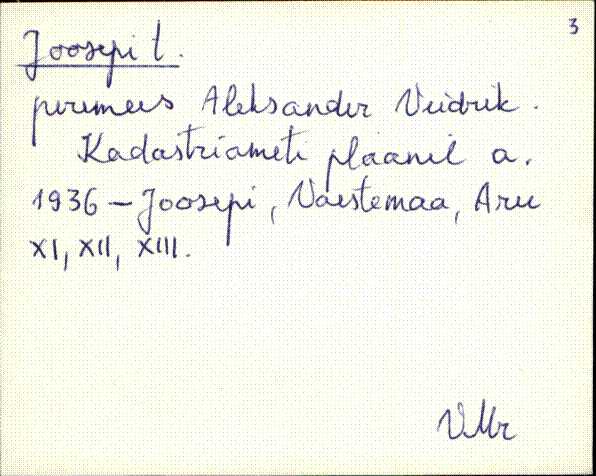 3
Joosepi t.
peremees Aleksander Veidrik.
Kadastriameti plaanil a.
1936 – Joosepi, Vaestemaa, Aru
XI, XII, XIII.
VMr